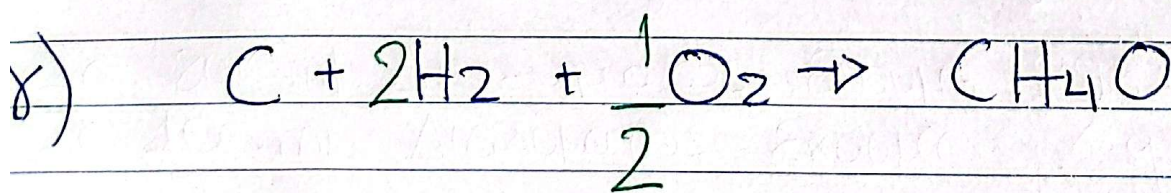 γ) C + 2H₂ + 1/2 O₂ → CH₄O